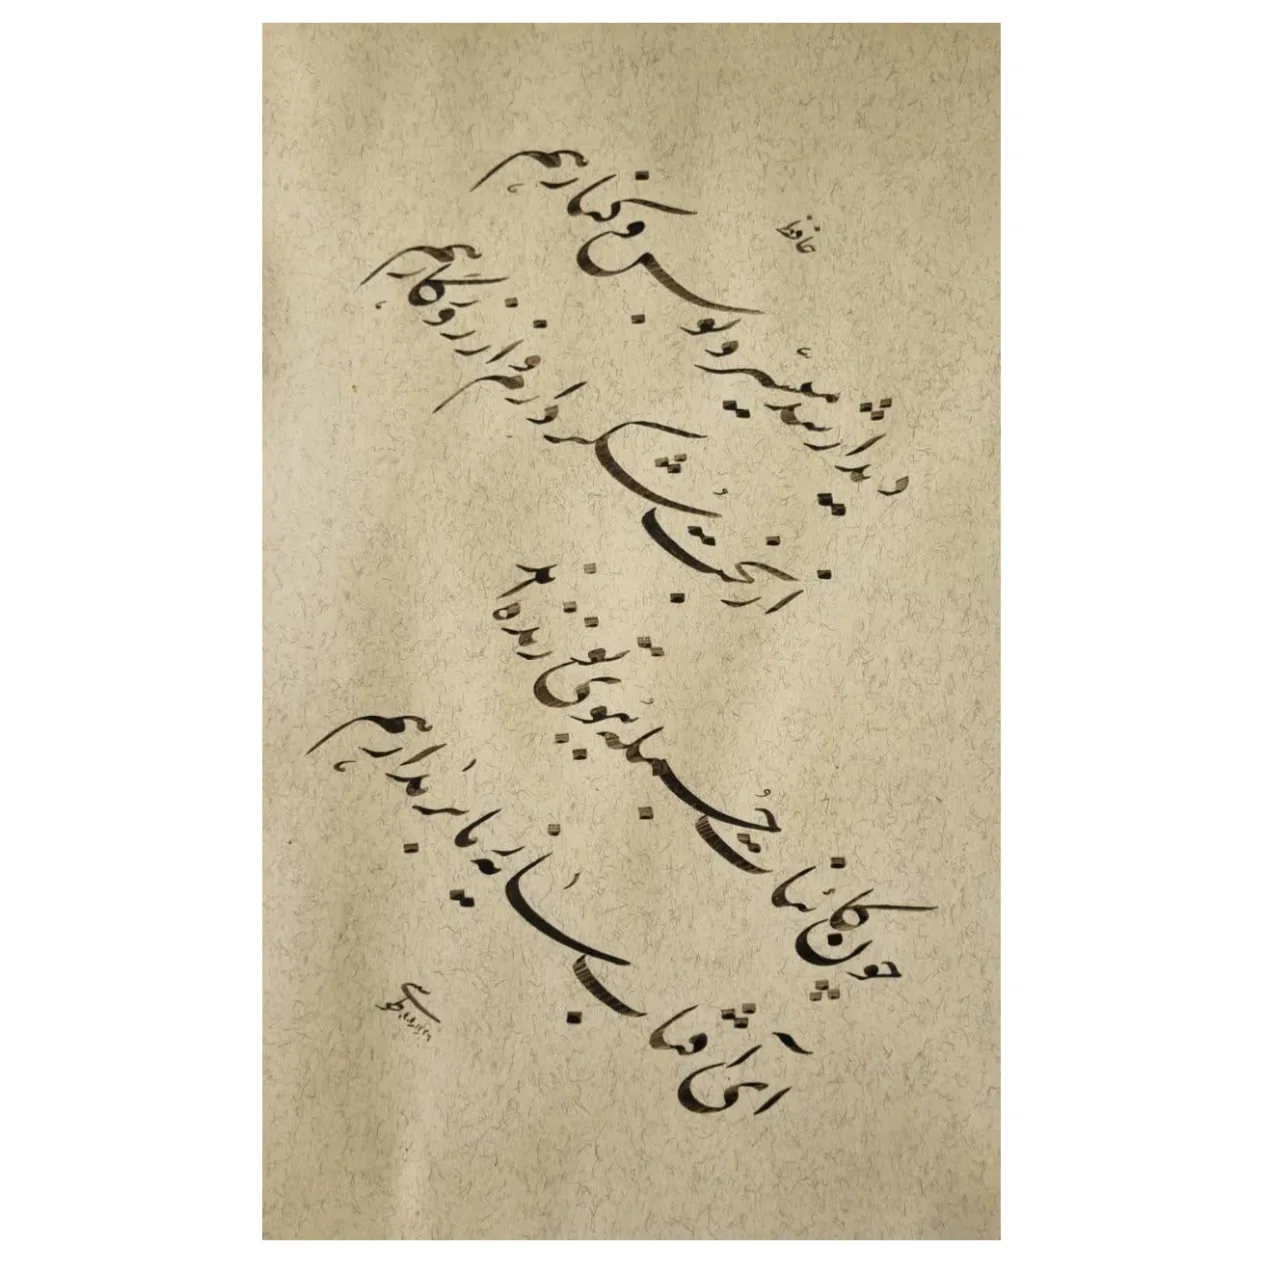 حافظ
دیدار شد میسر و بوس و کنار هم
از بخت شکر دارم و از روزگار هم
چون کائنات جُمله ببوی تو زنده اند
ای آفتاب سایه ز ما بر مدار هم